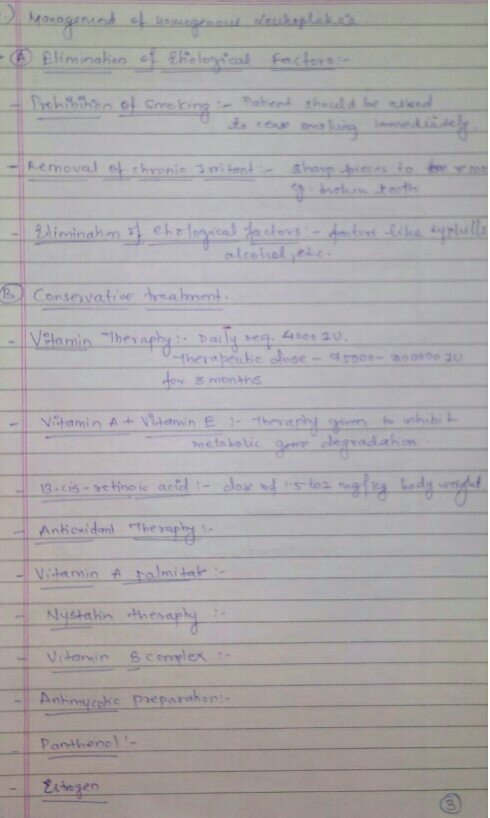 ) Management of homogenous leukoplakia.
(A) Elimination of Ehiological Factors:-
- Prohibition of smoking :- Patient should be asked
to cease smoking immediately.
- Removal of chronic Irritant :- Sharp pieces to
g. broken tooth
- Elimination of ehiological factors :- factors like syphilis
alcohol, etc.
(B) Conservative treatment.
- Vitamin Theraphy :- Daily req. 4000 IU.
Therapeutic dose - 75000 - 300000 IU
for 3 months
- Vitamin A + Vitamin E :- Theraphy given to inhibit
metabolic degradation.
- 13-cis-retinoic acid :- dose of 1.5 to 2 mg/kg body weight.
- Antioxidant Theraphy :-
- Vitamin A palmitat :-
- Nystatin theraphy :-
- Vitamin B complex :-
- Antimycotic preparation:-
- Panthenol :-
- Estrogen
3